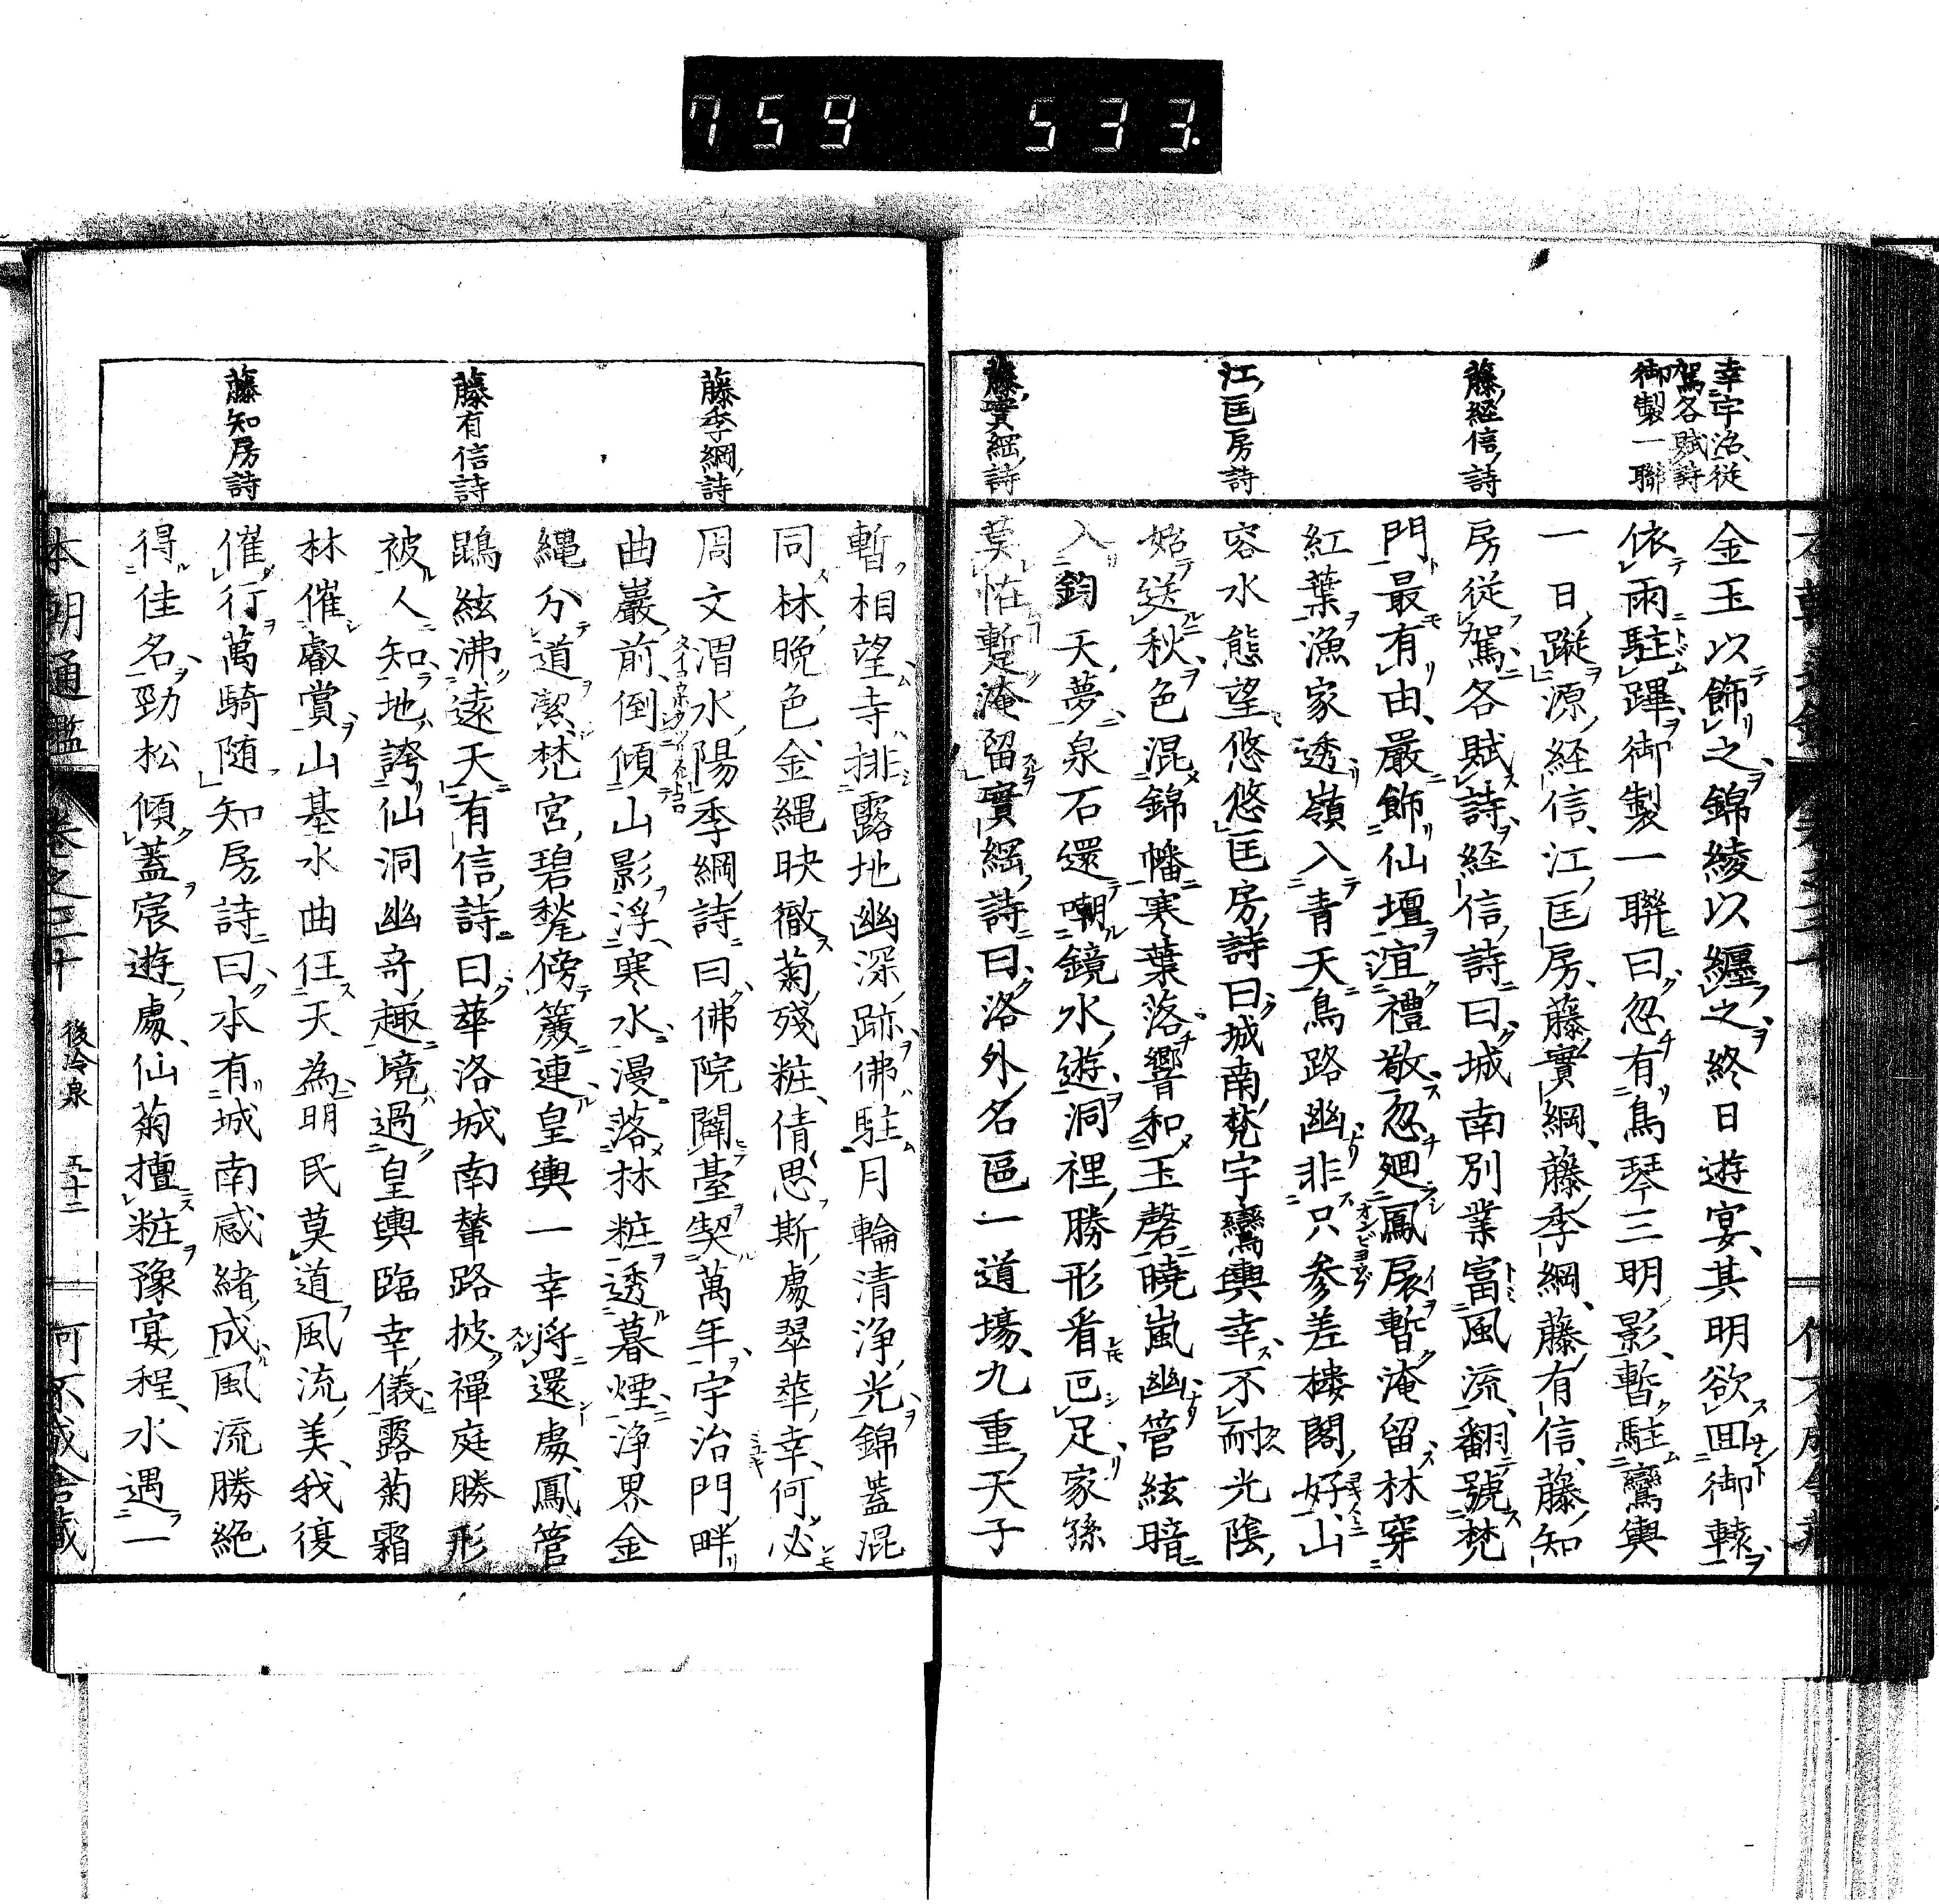 759 533.
幸宇治従
駕各賦詩
御製一聯
藤経信詩
江匡房詩
藤實綱詩
金玉以飾之錦綾以纒之終日遊宴其明欲囬御轅
依雨駐蹕御製一聯曰忽有鳥琴三明影暫駐鸞輿
一日蹤源経信江匡房藤實綱藤季綱藤有信藤知
房従駕各賦詩経信詩曰城南別業富風流翻號梵
門最有由嚴飾仙壇冝禮敬忽廻鳳扆暫淹留林穿
紅葉漁家透嶺入青天鳥路幽非只參差樓閣好山
容水態望悠悠匡房詩曰城南梵宇鸞輿幸不耐光陰
始送秋色混錦幡寒葉落響和玉磬曉嵐幽管絃暗
入鈞天夢泉石還嘲鏡水遊洞裡勝形看已足家猻
莫恠蹔淹留實綱詩曰洛外名區一道塲九重天子
藤季綱詩
藤有信詩
藤知房詩
暫相望寺排露地幽深跡佛駐月輪清浄光錦蓋混
同林晩色金縄映徹菊殘粧倩思斯處翠華幸何必
周文渭水陽季綱詩曰佛院闢臺契萬年宇治門畔
曲巖前倒傾山影浮寒水漫落林粧透暮煙浄界金
縄分道潔梵宮碧甃傍簷連皇輿一幸将還處鳳管
鵾絃沸遠天有信詩曰華洛城南輦路披禪庭勝形
被人知地誇仙洞幽奇趣境過皇輿臨幸儀露菊霜
林催叡賞山基水曲任天為明民莫道風流美我復
催行萬騎随知房詩曰本有城南感緒成風流勝絶
得佳名勁松傾蓋宸遊處仙菊擅粧豫宴程水遇一
本朝通鑑 卷之三十 後冷泉 五十二